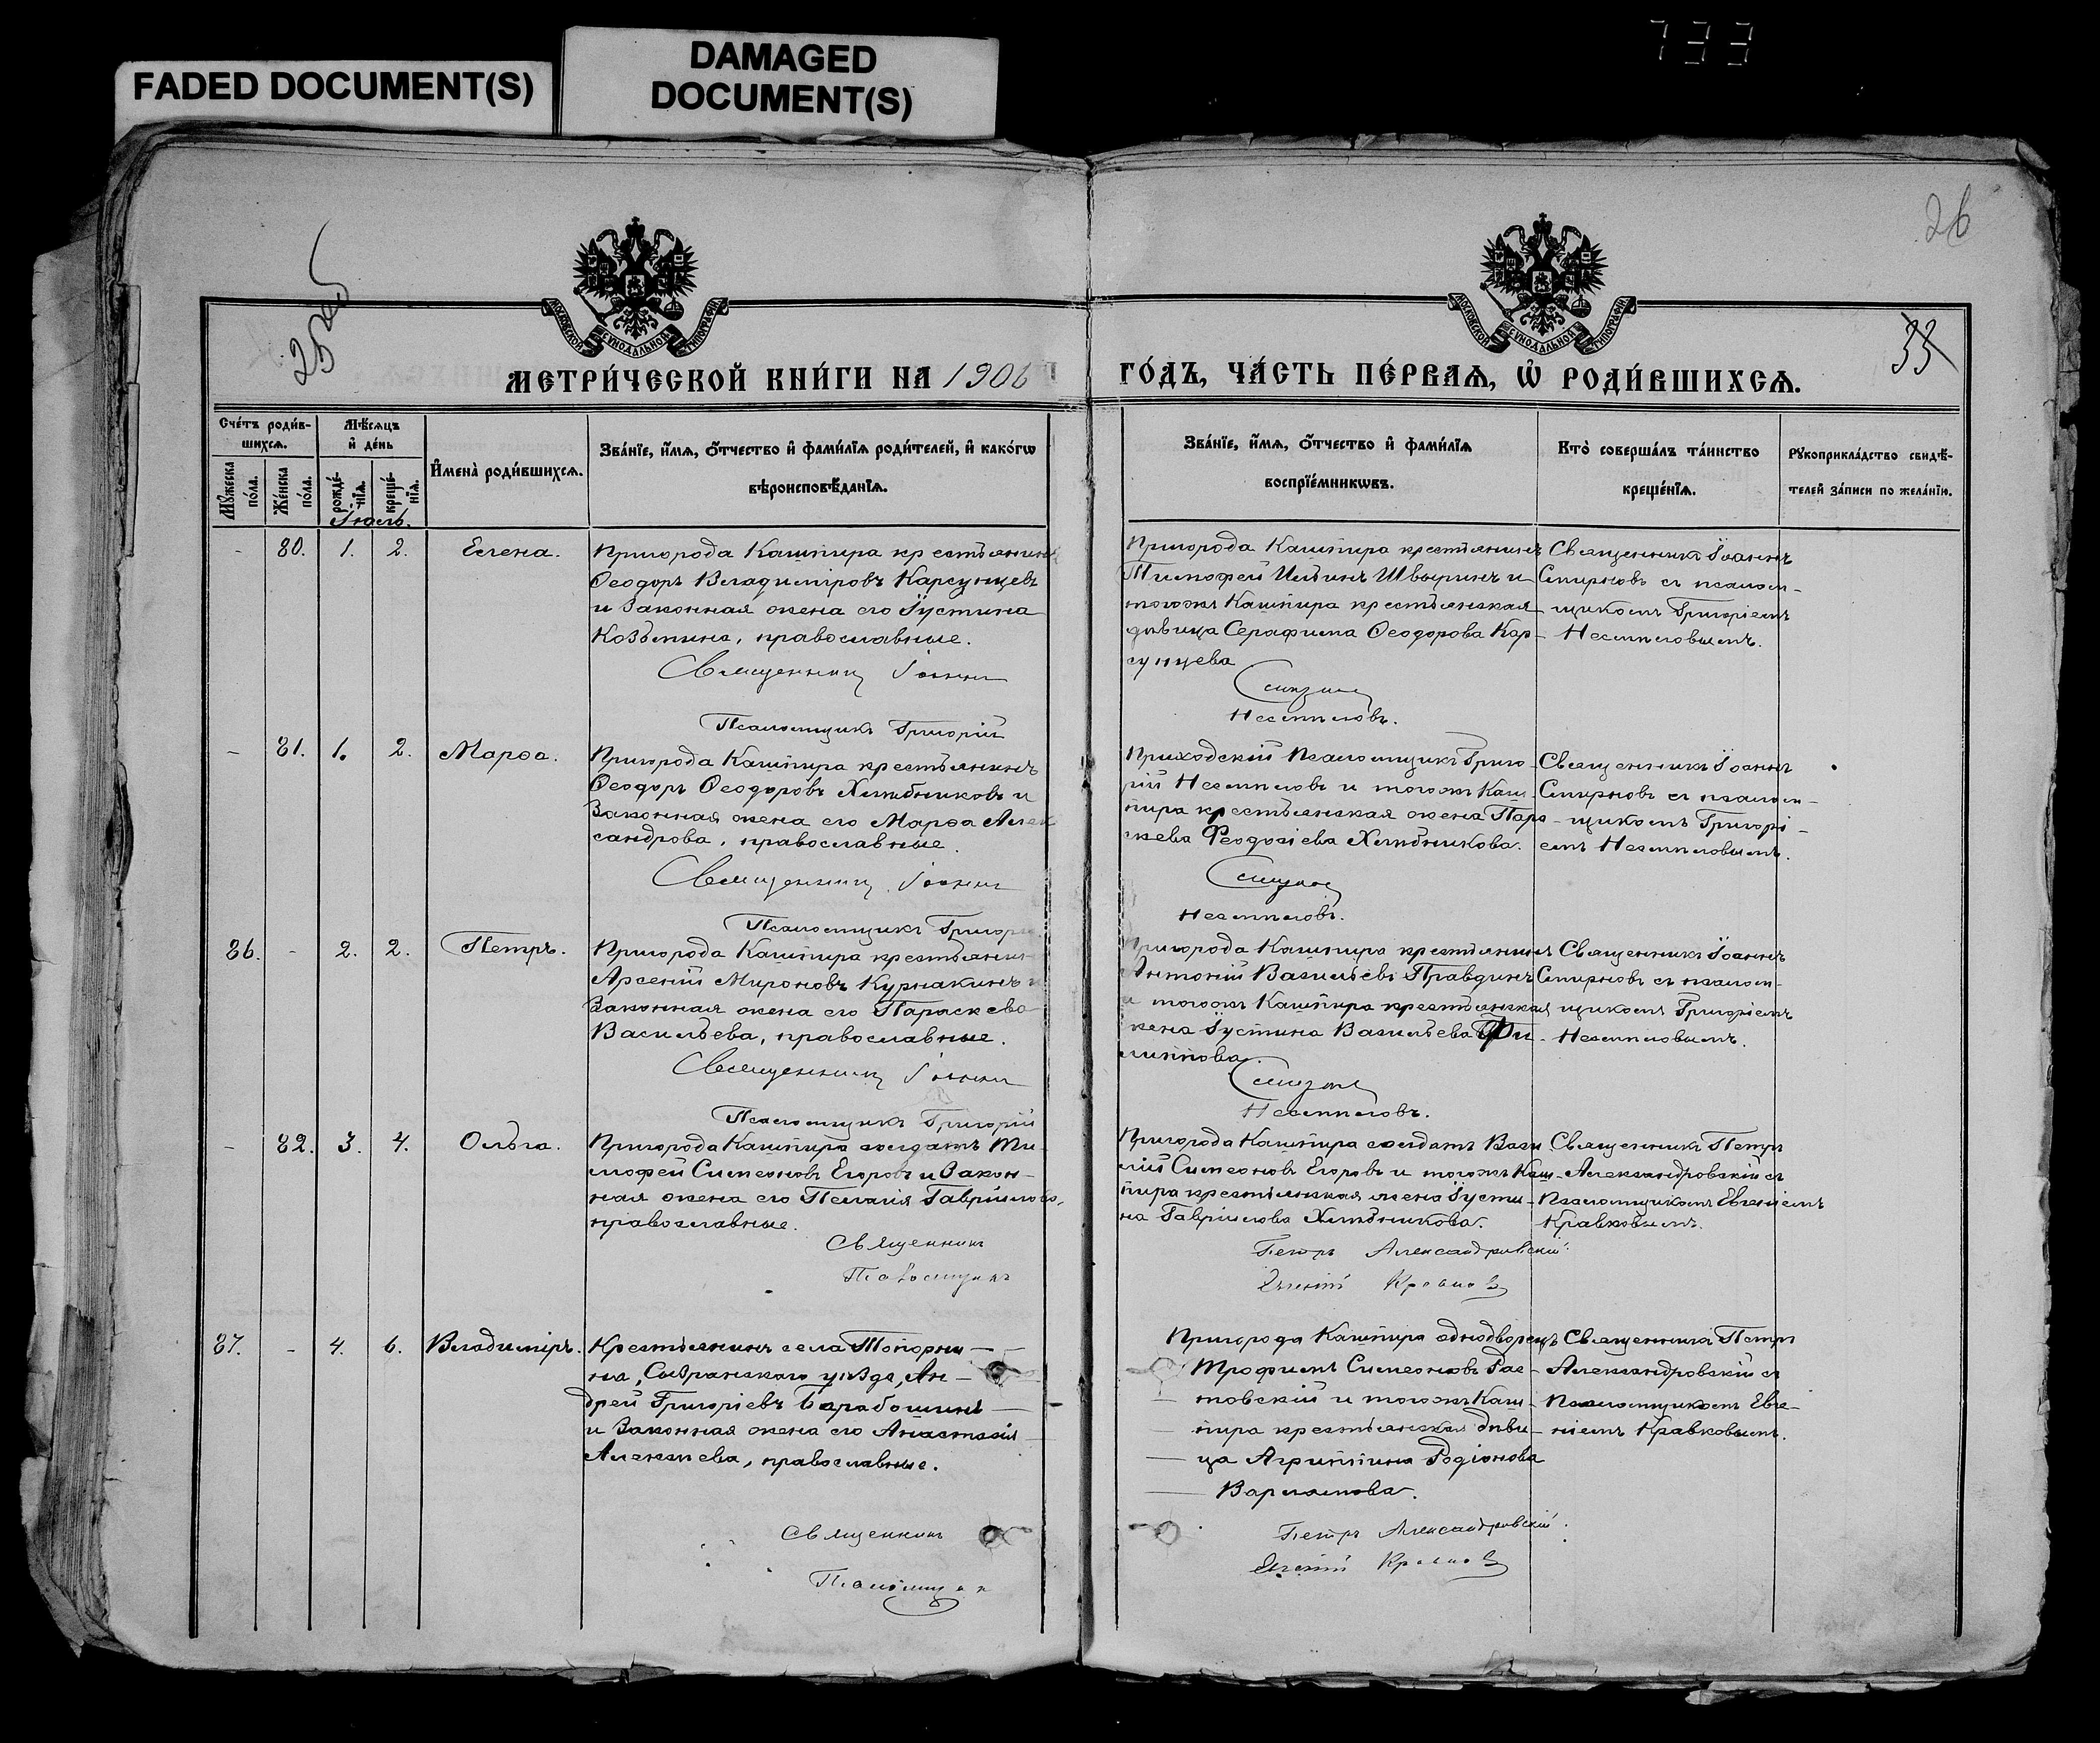 FADED DOCUMENT(S)
DAMAGED
DOCUMENT(S)
733
26
25
33
МОСКОВСКОЙ СѴНОДАЛЬНОЙ ТИПОГРАФІИ
МОСКОВСКОЙ СѴНОДАЛЬНОЙ ТИПОГРАФІИ
МЕТРИ́ЧЕСКОЙ КНИ́ГИ НА 1906
ГО́ДЪ, ЧА́СТЬ ПЕ́РВАѦ, Ѡ РОДИ́ВШИХСѦ.
Сче́тъ роди́в-
шихсѧ.
Мꙋжеска по́ла.
Же́нска по́ла.
Мѣ́сѧцъ
и҆ де́нь
рожде́-нїѧ.
креще́-нїѧ.
И҆мена̀ роди́вшихсѧ.
Зва́нїе, и҆́мѧ, ѻ҆́тчество и҆ фами́лїѧ роди́телей, и҆ како́гѡ
вѣроисповѣ́данїѧ.
Зва́нїе, и҆́мѧ, ѻ҆́тчество и҆ фами́лїѧ
воспрїе́мникѡвъ.
Кто̀ соверша́лъ та́инство
креще́нїѧ.
Рꙋкоприкла́дство свидѣ́-
телей за́писи по жела́нїю.
Іюль.
- 80. 1. 2. Елена.
Пригорода Кашпира крестьянинъ
Ѳеодоръ Владиміровъ Карсунцевъ
и законная жена его Іустина
Козьмина, православные.
Священникъ Іоаннъ
Псаломщикъ Григорій
Пригорода Кашпира крестьянинъ
Тимофей Ильинъ Швыринъ и
тогожъ Кашпира крестьянская
дѣвица Серафима Ѳеодорова Кар-
сунцева
Смирновъ
Несмѣловъ.
Священникъ Іоаннъ
Смирновъ съ псалом-
щикомъ Григоріемъ
Несмѣловымъ.
- 81. 1. 2. Марѳа.
Пригорода Кашпира крестьянинъ
Ѳеодоръ Ѳеодоровъ Хлѣбниковъ и
законная жена его Марѳа Алек
сандрова, православные.
Священникъ Іоаннъ
Псаломщикъ Григорій
Приходскій псаломщикъ Григо-
рій Несмѣловъ и тогожъ Каш-
пира крестьянская жена Пара-
скева Феодосіева Хлѣбникова.
Смирновъ
Несмѣловъ.
Священникъ Іоаннъ
Смирновъ съ псалом-
щикомъ Григорі-
емъ Несмѣловымъ.
86. - 2. 2. Петръ.
Пригорода Кашпира крестьянинъ
Арсеній Мироновъ Курнакинъ и
законная жена его Параскева
Васильева, православные.
Священникъ Іоаннъ
Псаломщикъ Григорій
Пригорода Кашпира крестьянинъ
Антоній Васильевъ Правдинъ
и тогожъ Кашпира крестьянская
жена Іустина Васильева Фи-
липпова.
Смирновъ
Несмѣловъ.
Священникъ Іоаннъ
Смирновъ съ псалом-
щикомъ Григоріемъ
Несмѣловымъ.
- 82. 3. 4. Ольга.
Пригорода Кашпира солдатъ Ти-
мофей Симеоновъ Егоровъ и закон-
ная жена его Пелагія Гавріилова,
православные.
Священникъ
Псаломщикъ
Пригорода Кашпира солдатъ Васи-
лій Симеоновъ Егоровъ и тогожъ Каш-
пира крестьянская жена Іусти-
на Гавріилова Хлѣбникова.
Петръ Александровскій.
Евгеній Кравковъ
Священникъ Петръ
Александровскій съ
псаломщикомъ Евгеніемъ
Кравковымъ.
87. - 4. 6. Владиміръ.
Крестьянинъ села Топорни-
на, Сызранскаго уѣзда, Ан-
дрей Григоріевъ Барабошинъ
и законная жена его Анастасія
Алексѣева, православные.
Священникъ
Псаломщикъ
Пригорода Кашпира однодворецъ
Трофимъ Симеоновъ Рас-
товскій и тогожъ Каш-
пира крестьянская дѣви-
ца Агриппина Родіонова
Варламова.
Петръ Александровскій.
Евгеній Кравковъ
Священникъ Петръ
Александровскій съ
псаломщикомъ Евге-
ніемъ Кравковымъ.